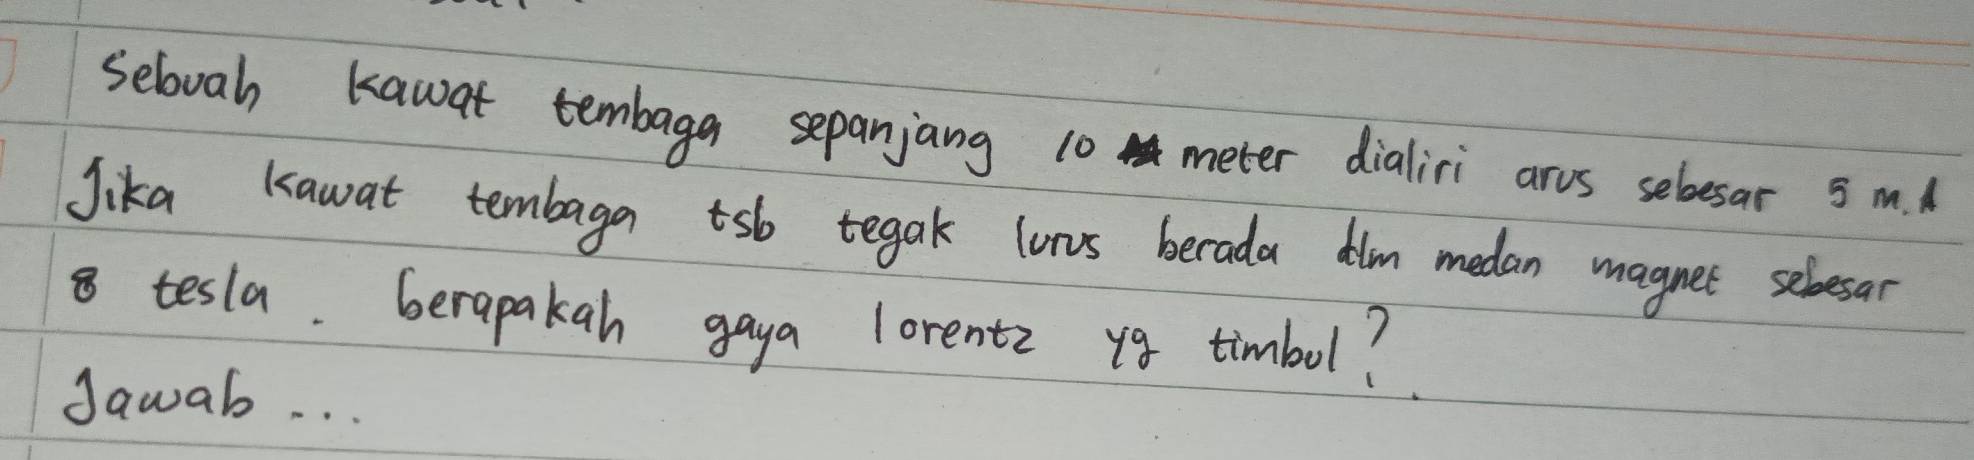 Sebuah kawat tembaga sepanjang 10 meter dialiri arus sebesar 5 m.A
Jika kawat tembaga tsb tegak lurus berada dlm medan magnet sebesar
8 tesla. berapakah gaya lorentz yg timbul?
Jawab ...